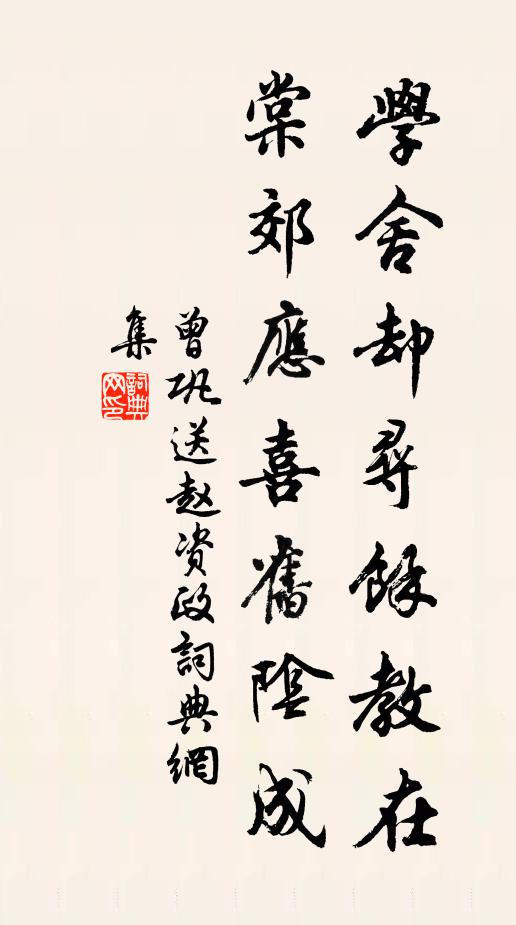 學舍却尋餘教在
棠郊應喜舊陰成
曾巩送赵资政詞典網
集
詞典
网印